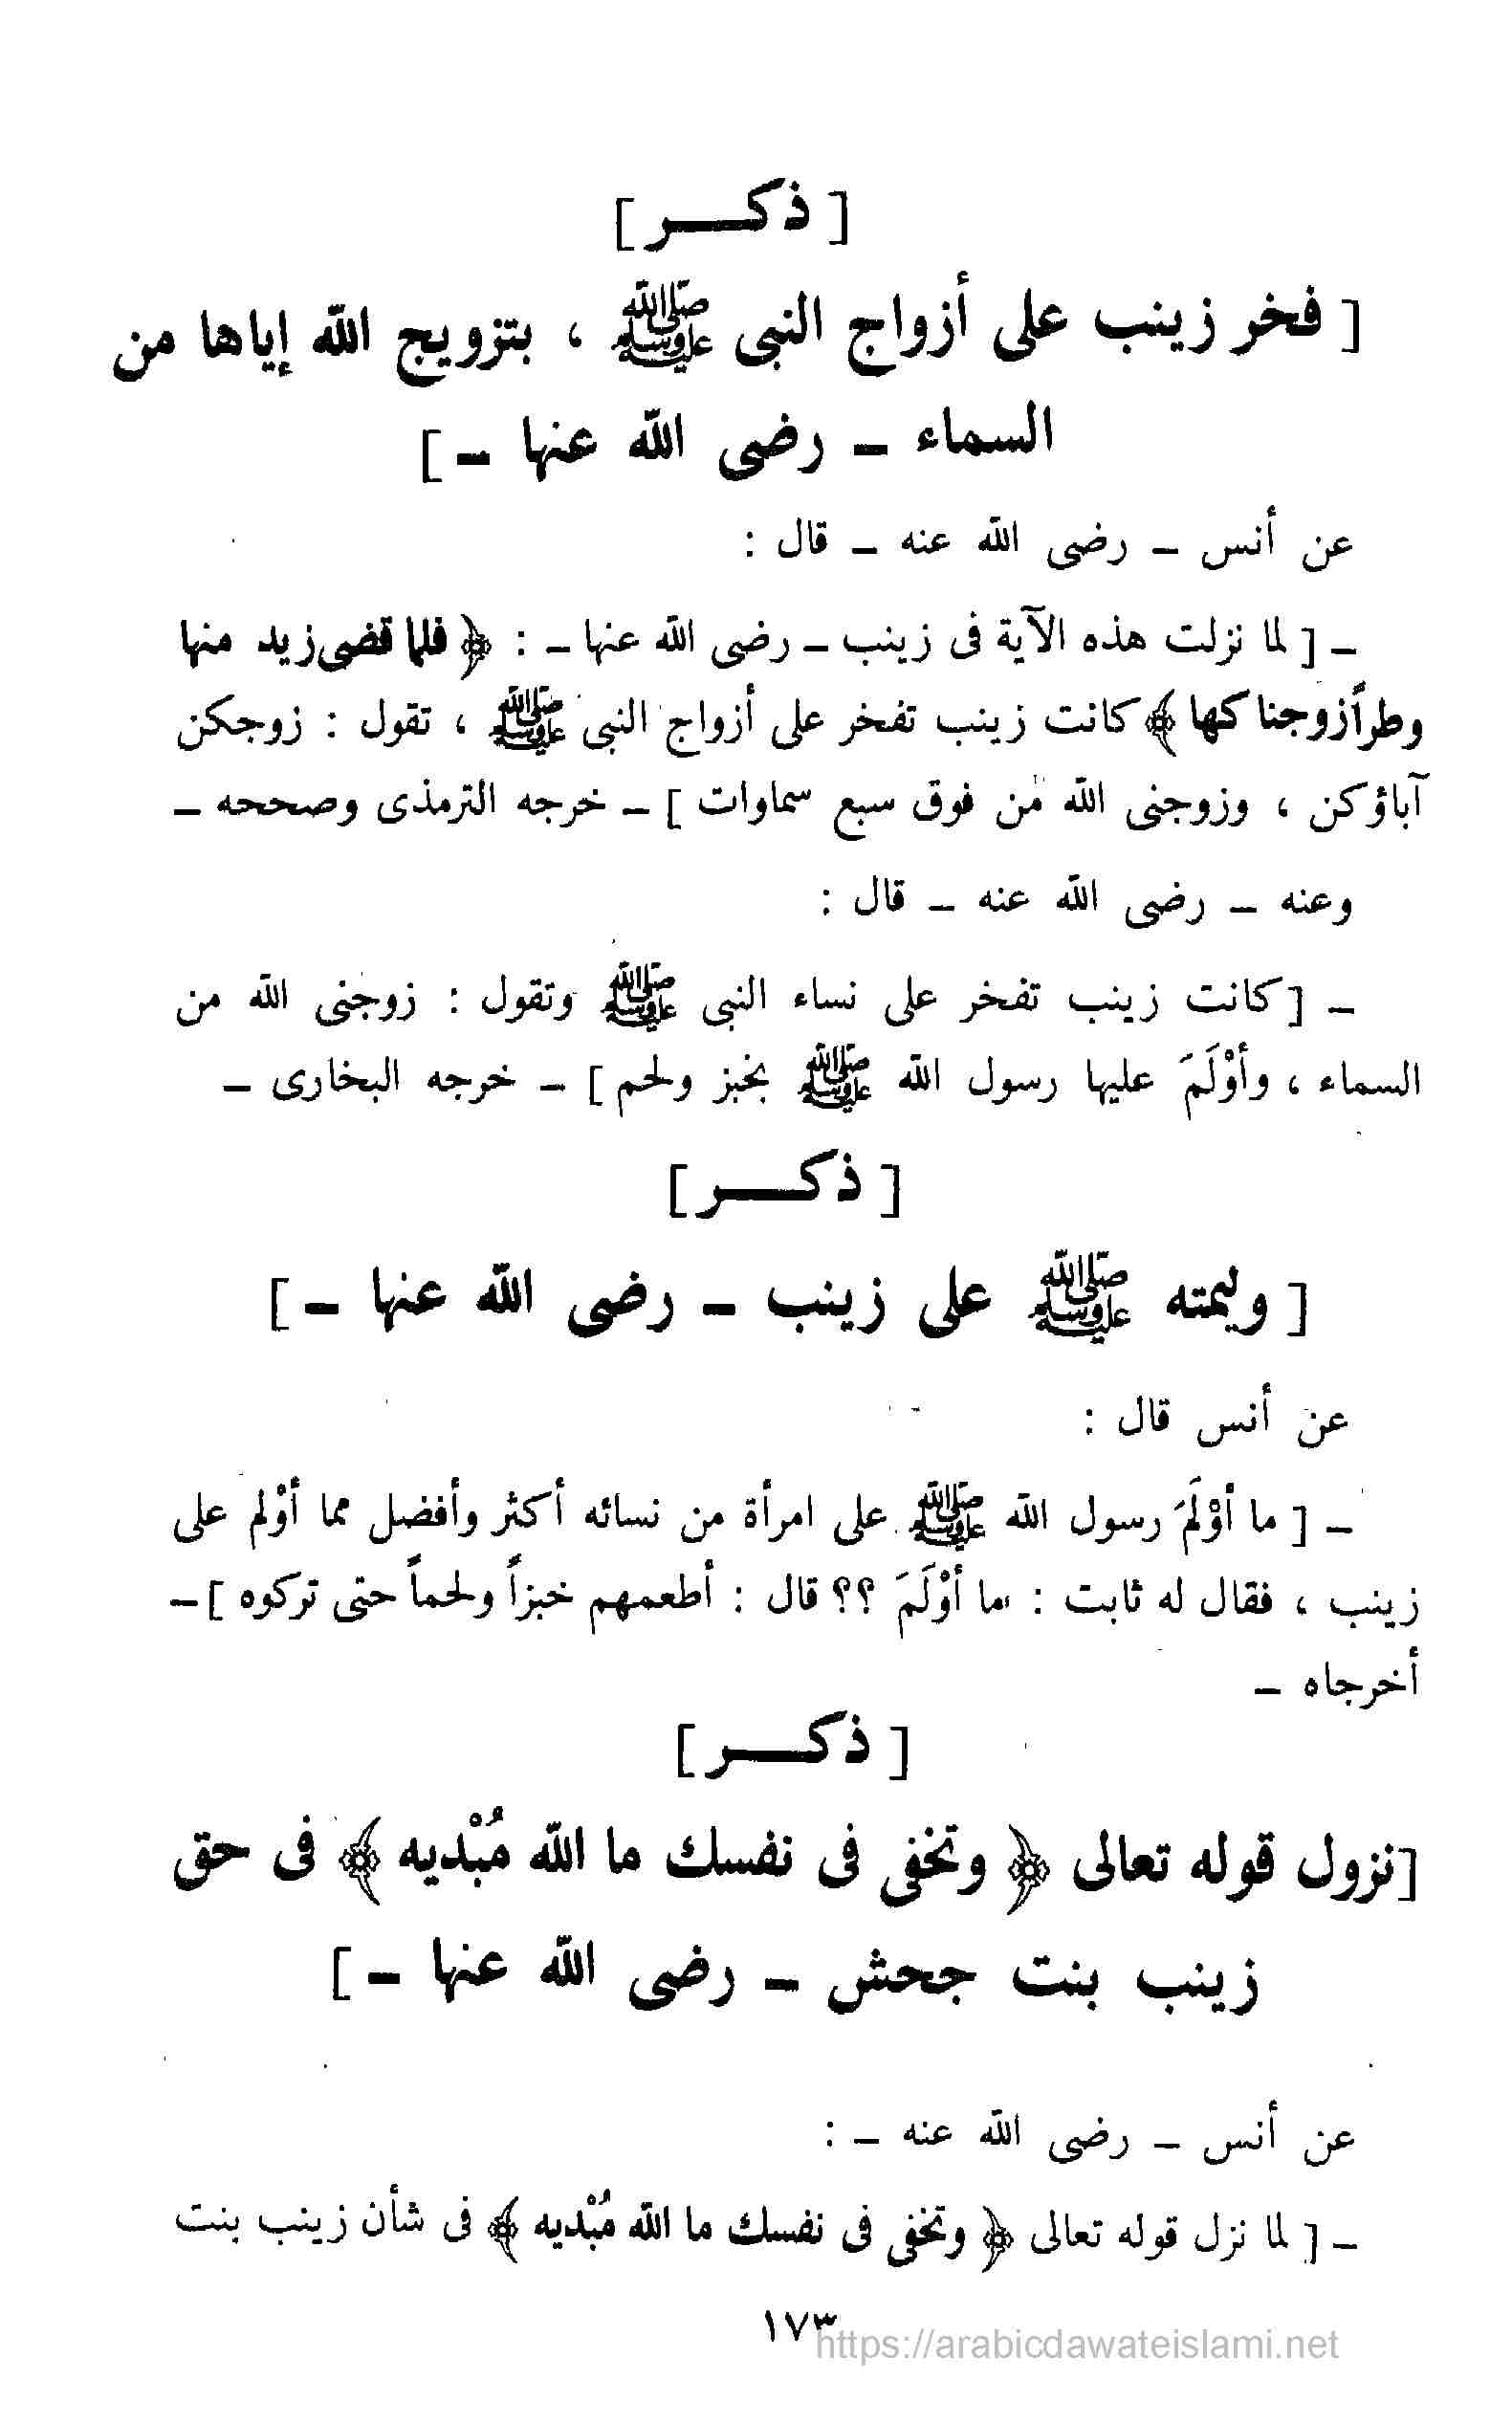 [ ذكـــر ]
[ فخر زينب على أزواج النبى ﷺ ، بتزويج الله إياها من
السماء ـ رضى الله عنها ـ ]
عن أنس ـ رضى الله عنه ـ قال :
ـ [ لما نزلت هذه الآية فى زينب ـ رضى الله عنها ـ : ﴿ فلما قضى زيد منها
وطراً زوجناكها ﴾ كانت زينب تفخر على أزواج النبى ﷺ ، تقول : زوجكن
آباؤكن ، وزوجنى الله من فوق سبع سماوات ] ـ خرجه الترمذى وصححه ـ
وعنه ـ رضى الله عنه ـ قال :
ـ [ كانت زينب تفخر على نساء النبى ﷺ وتقول : زوجنى الله من
السماء ، وأوْلَمَ عليها رسول الله ﷺ بخبز ولحم ] ـ خرجه البخارى ـ
[ ذكـــر ]
[ وليمته ﷺ على زينب ـ رضى الله عنها ـ ]
عن أنس قال :
ـ [ ما أوْلَمَ رسول الله ﷺ على امرأة من نسائه أكثر وأفضل مما أوْلم على
زينب ، فقال له ثابت : ما أوْلَمَ ؟؟ قال : أطعمهم خبزاً ولحماً حتى تركوه ] ـ
أخرجاه ـ
[ ذكـــر ]
[ نزول قوله تعالى ﴿ وتخفى فى نفسك ما الله مُبْديه ﴾ فى حق
زينب بنت جحش ـ رضى الله عنها ـ ]
عن أنس ـ رضى الله عنه ـ :
ـ [ لما نزل قوله تعالى ﴿ وتخفى فى نفسك ما الله مُبْديه ﴾ فى شأن زينب بنت
١٧٣
https://arabicdawateislami.net